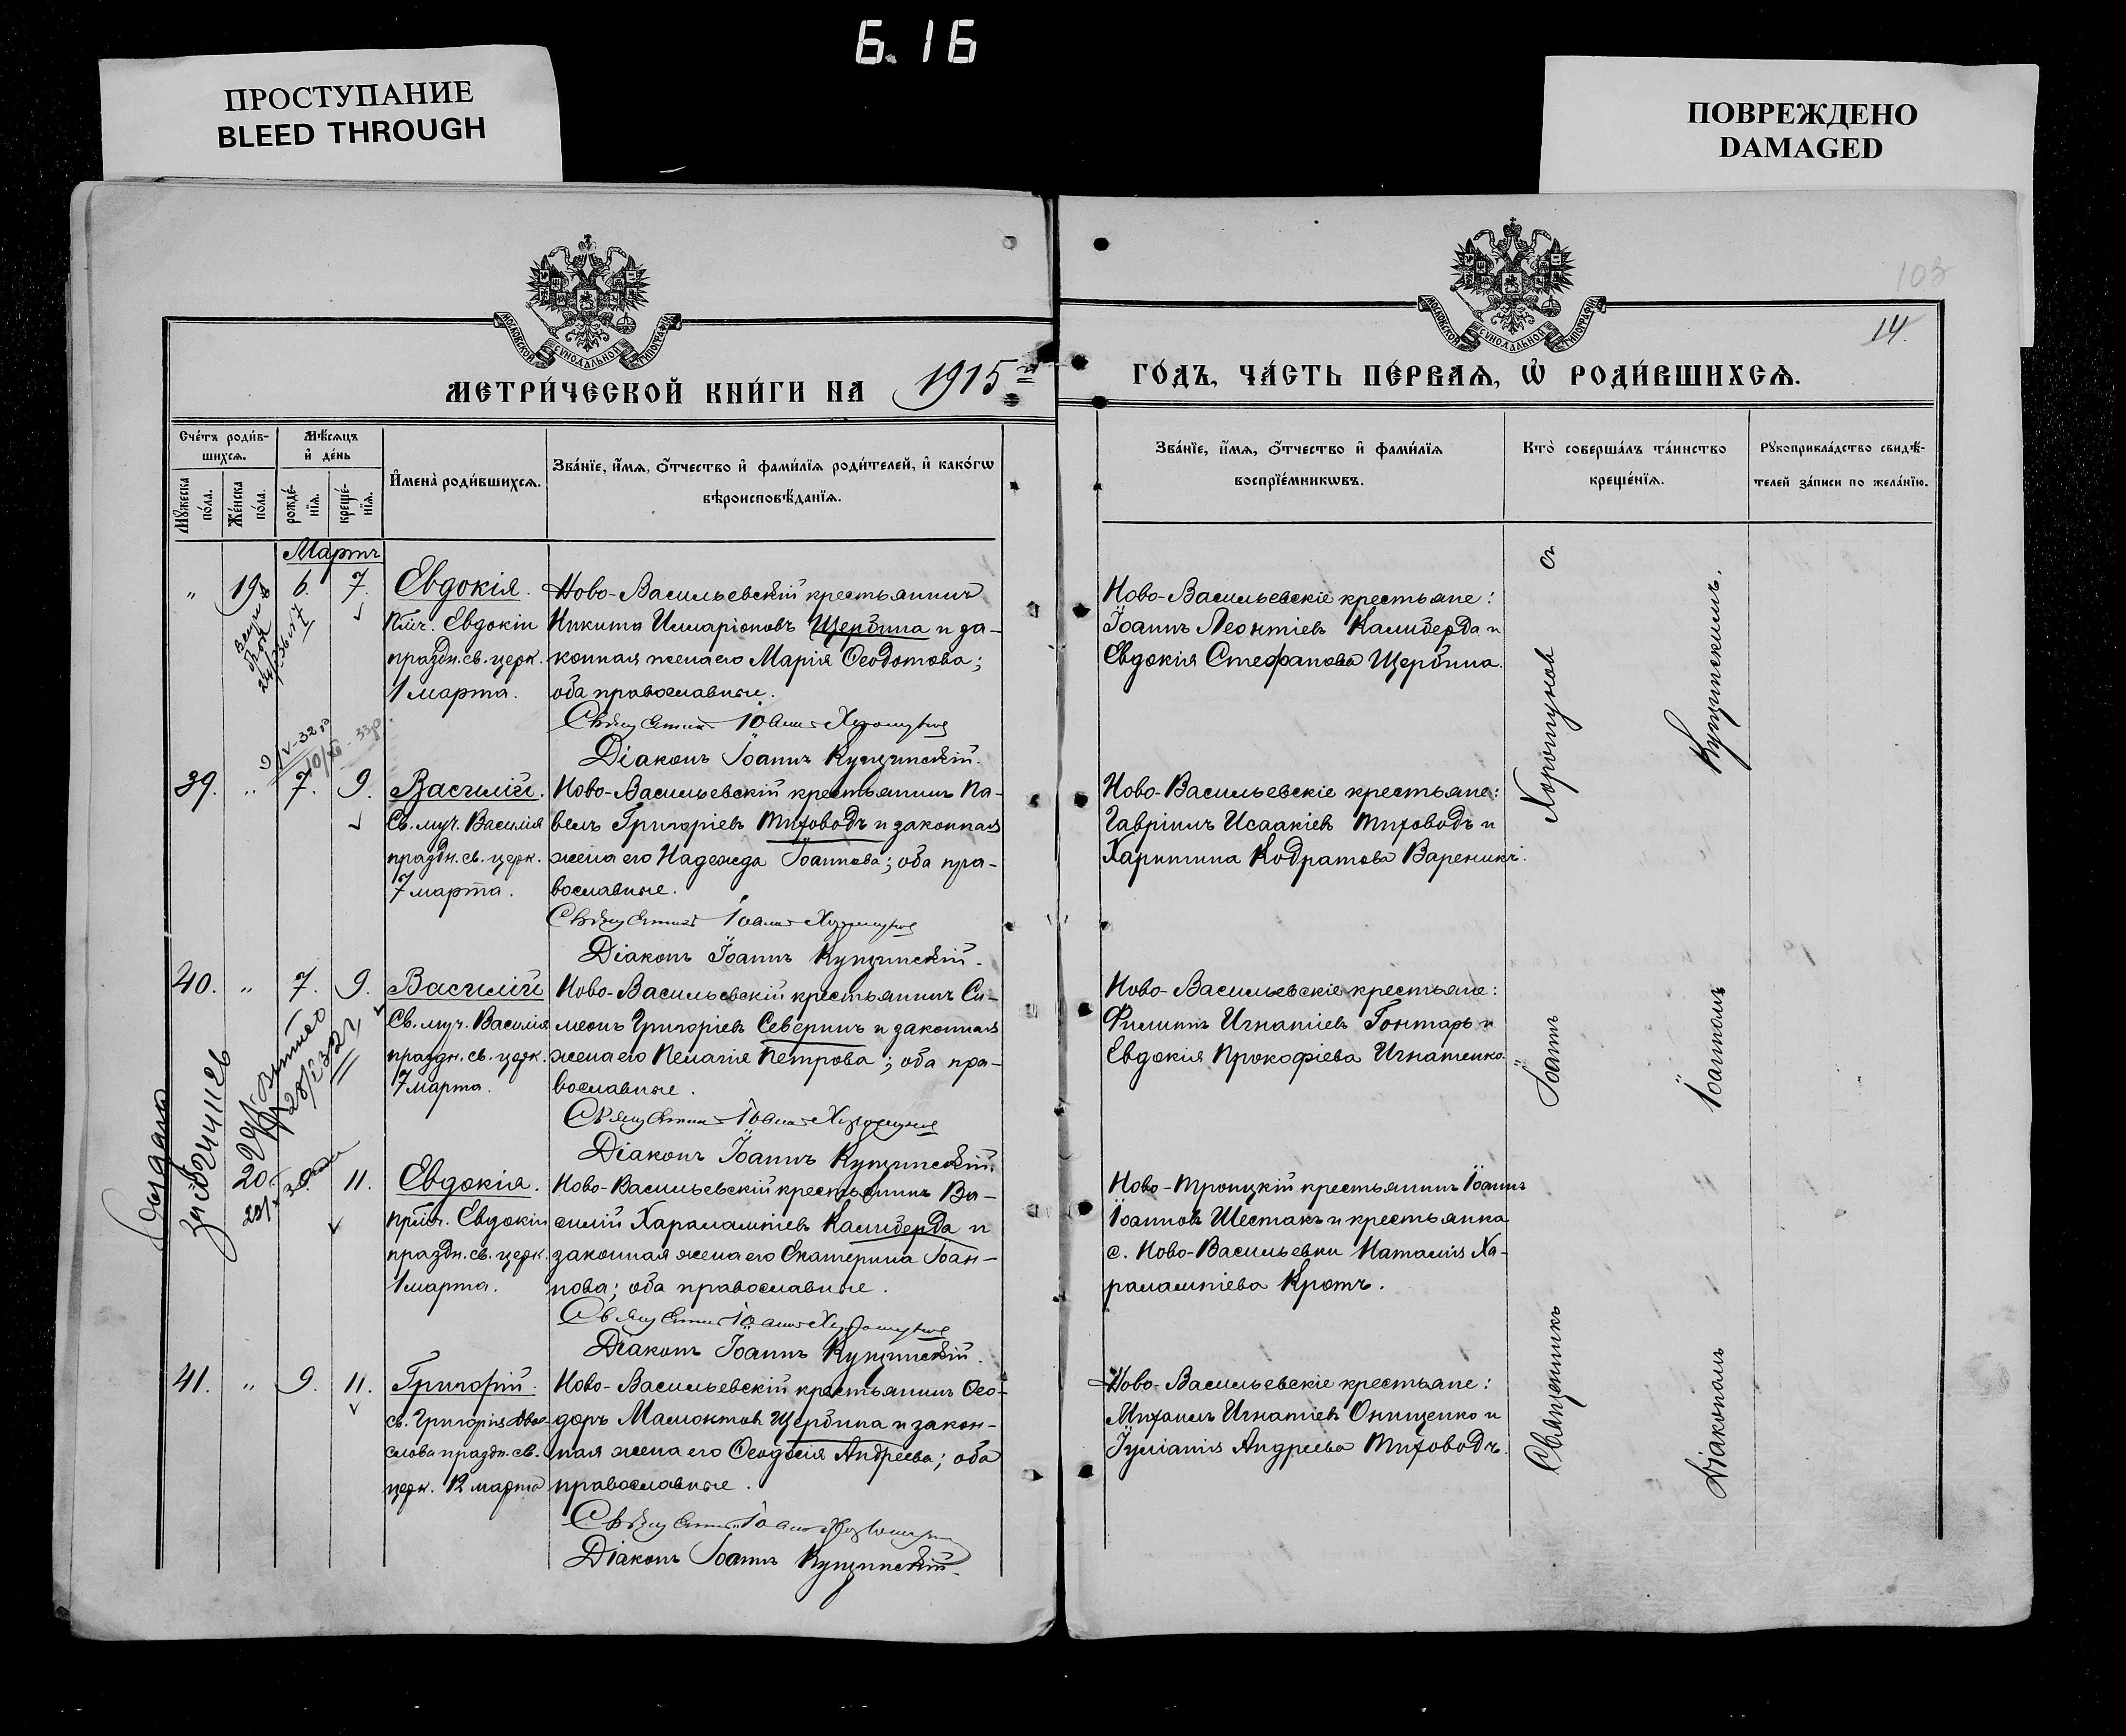 Б.16
ПРОСТУПАНИЕ
BLEED THROUGH
ПОВРЕЖДЕНО
DAMAGED
103
14.
МОСКОВСКОЙ СѴНОДАЛЬНОЙ ТИПОГРАФІИ
МОСКОВСКОЙ СѴНОДАЛЬНОЙ ТИПОГРАФІИ
МЕТРИ́ЧЕСКОЙ КНИ́ГИ НА 1915 й
ГО́ДЪ, ЧА́СТЬ ПЕ́РВАѦ, Ѽ РОДИ́ВШИХСѦ.
Сче́тъ роди́в-
шихсѧ.
Мѣ́сѧцъ
и҆ де́нь
Мꙋ́жеска
по́ла.
Же́нска
по́ла.
рожде́-
нїѧ.
креще́-
нїѧ.
И҆мена̀ роди́вшихсѧ.
Зва́нїе, и҆́мѧ, ѻ҆́тчество и҆ фами́лїѧ роди́телей, и҆ како́гѡ
вѣроисповѣ́данїѧ.
Зва́нїе, и҆́мѧ, ѻ҆́тчество и҆ фами́лїѧ
воспрїе́мникѡвъ.
Кто̀ соверша́лъ та́инство
креще́нїѧ.
Рꙋкоприкла́дство свидѣ́-
телей за́писи по жела́нїю.
Мартъ
" 19. 6. 7. Евдокія.
Пмч. Евдокіи
праздн. св. церк.
1 марта.
Ново-Васильевскій крестьянинъ
Никита Илларіоновъ Щербина и за-
конная жена его Марія Ѳеодотова;
оба православные.
Священникъ Іоаннъ Хоропуновъ
Діаконъ Іоаннъ Купчинскій.
Ново-Васильевскіе крестьяне:
Іоаннъ Леонтіевъ Калиберда и
Евдокія Стефанова Щербина.
39. " 7. 9. Василій.
Св. муч. Василія
праздн. св. церк.
7 марта.
Ново-Васильевскій крестьянинъ Па-
велъ Григоріевъ Тиховодъ и законная
жена его Надежда Іоаннова; оба пра-
вославные.
Священникъ Іоаннъ Хоропуновъ
Діаконъ Іоаннъ Купчинскій.
Ново-Васильевскіе крестьяне:
Гавріилъ Исаакіевъ Тиховодъ и
Харитина Кодратова Вареникъ.
40. " 7. 9. Василій
Св. муч. Василія
праздн. св. церк.
7 марта.
Ново-Васильевскій крестьянинъ Си-
меонъ Григоріевъ Северинъ и законная
жена его Пелагія Петрова; оба пра-
вославные.
Священникъ Іоаннъ Хоропуновъ
Діаконъ Іоаннъ Купчинскій.
Ново-Васильевскіе крестьяне:
Филиппъ Игнатіевъ Гонтарь и
Евдокія Прокофіева Игнатенко.
20. 11. Евдокія.
Прмч. Евдокіи
праздн. св. церк.
1 марта.
Ново-Васильевскій крестьянинъ Ва-
силій Харалампіевъ Калиберда и
законная жена его Екатерина Іоан-
нова; оба православные.
Священникъ Іоаннъ Хоропуновъ
Діаконъ Іоаннъ Купчинскій.
Ново-Троицкій крестьянинъ Іоаннъ
Іоанновъ Шестакъ и крестьянка
с. Ново-Васильевки Наталія Ха-
рлампіева Кротъ.
41. " 9. 11. Григорій.
св. Григорія Двое-
слова праздн. св.
церк. 12 марта
Ново-Васильевскій крестьянинъ Ѳео-
доръ Мамонтовъ Щербина и закон-
ная жена его Ѳеодосія Андреева; оба
православные.
Священникъ Іоаннъ Хоропуновъ
Діаконъ Іоаннъ Купчинскій.
Ново-Васильевскіе крестьяне:
Михаилъ Игнатіевъ Онищенко и
Іуліанія Андреева Тиховодъ.
Священникъ Іоаннъ Хоропуновъ съ
Діакономъ Іоанномъ Купчинскимъ.